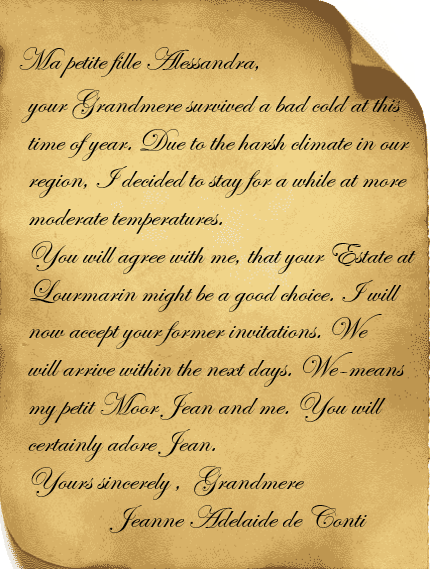 Ma petite fille Alessandra,
your Grandmere survived a bad cold at this
time of year. Due to the harsh climate in our
region, I decided to stay for a while at more
moderate temperatures.
You will agree with me, that your Estate at
Lourmarin might be a good choice. I will
now accept your former invitations. We
will arrive within the next days. We-means
my petit Moor Jean and me. You will
certainly adore Jean.
Yours sincerely , Grandmere
Jeanne Adelaide de Conti